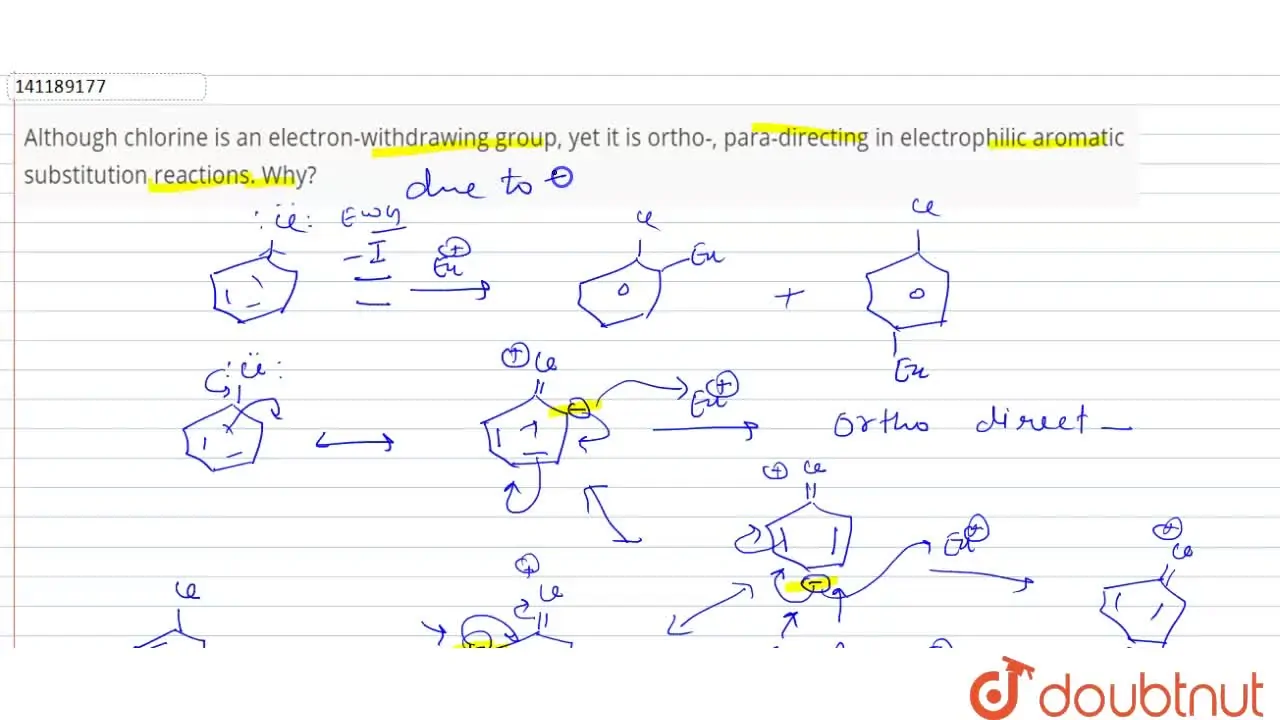 141189177
Although chlorine is an electron-withdrawing group, yet it is ortho-, para-directing in electrophilic aromatic
substitution reactions. Why?
due to
:Cl: EWG
-I
Cl
Cl
+
:Cl:
+ Cl
Ortho direct
+ Cl
+
Cl
+
Cl
+
Cl
doubtnut